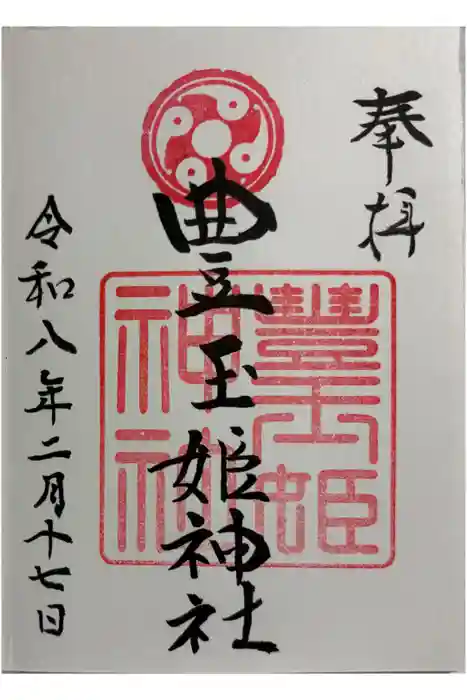 奉拝
豊玉姫神社
令和八年二月十七日
豐玉姫
神社